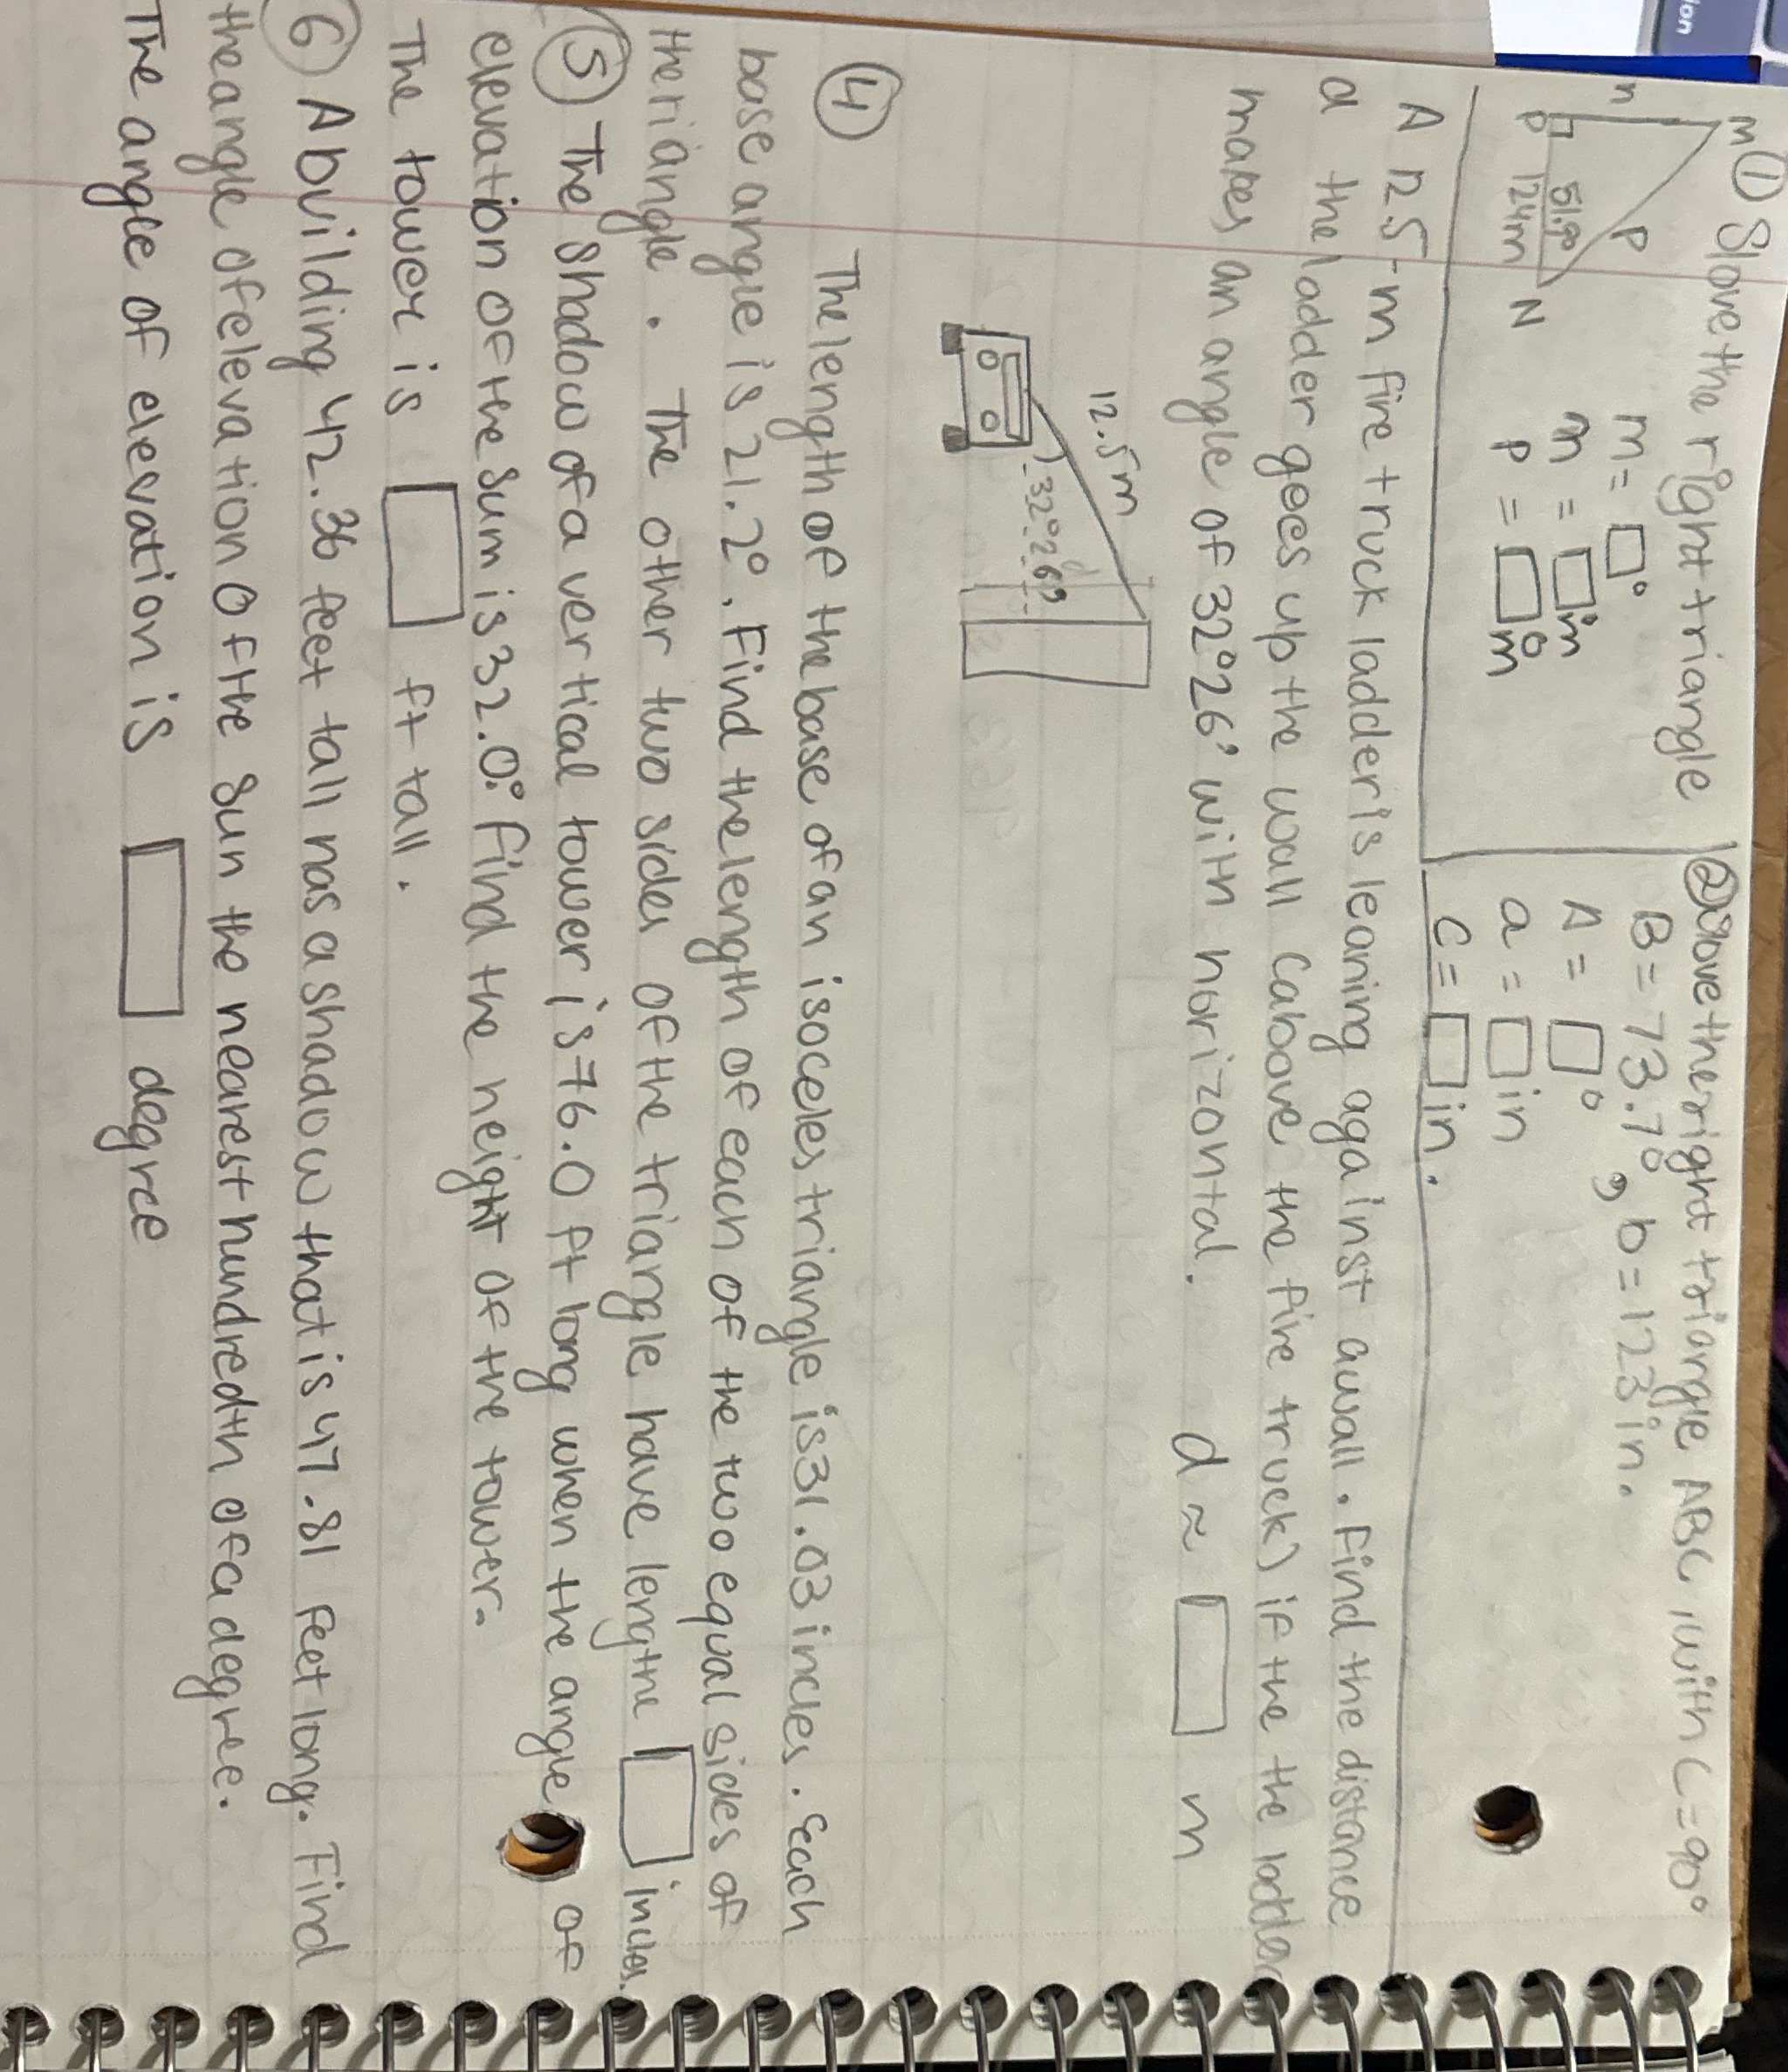 ① Slove the right triangle
M
n
P
P
51.9°
124m
N
m = □°
m = □m
P = □m
② Slove the right triangle ABC, with C=90°
B = 73.7°, b = 123 in.
A = □°
a = □ in
c = □ in.
A 12.5-m fire truck ladder is leaning against a wall. Find the distance
d the ladder goes up the wall Cabove the fire truck) if the ladder
makes an angle of 32°26' with horizontal. d ≈ □ m
12.5m
32°26'
④ The length of the base of an isoceles triangle is 31.03 inches. Each
base angle is 21.2°. Find the length of each of the two equal sides of
the riangle. The other two sides of the triangle have lengthe □ inches.
⑤ The shadow of a vertical tower is 76.0 ft long when the angle of
elevation of the sum is 32.0°. Find the height of the tower.
The tower is □ ft tall.
⑥ A building 42.36 feet tall has a shadow that is 47.81 feet long. Find
the angle of elevation of the sun the nearest hundredth of a degree.
The angle of elevation is □ degree